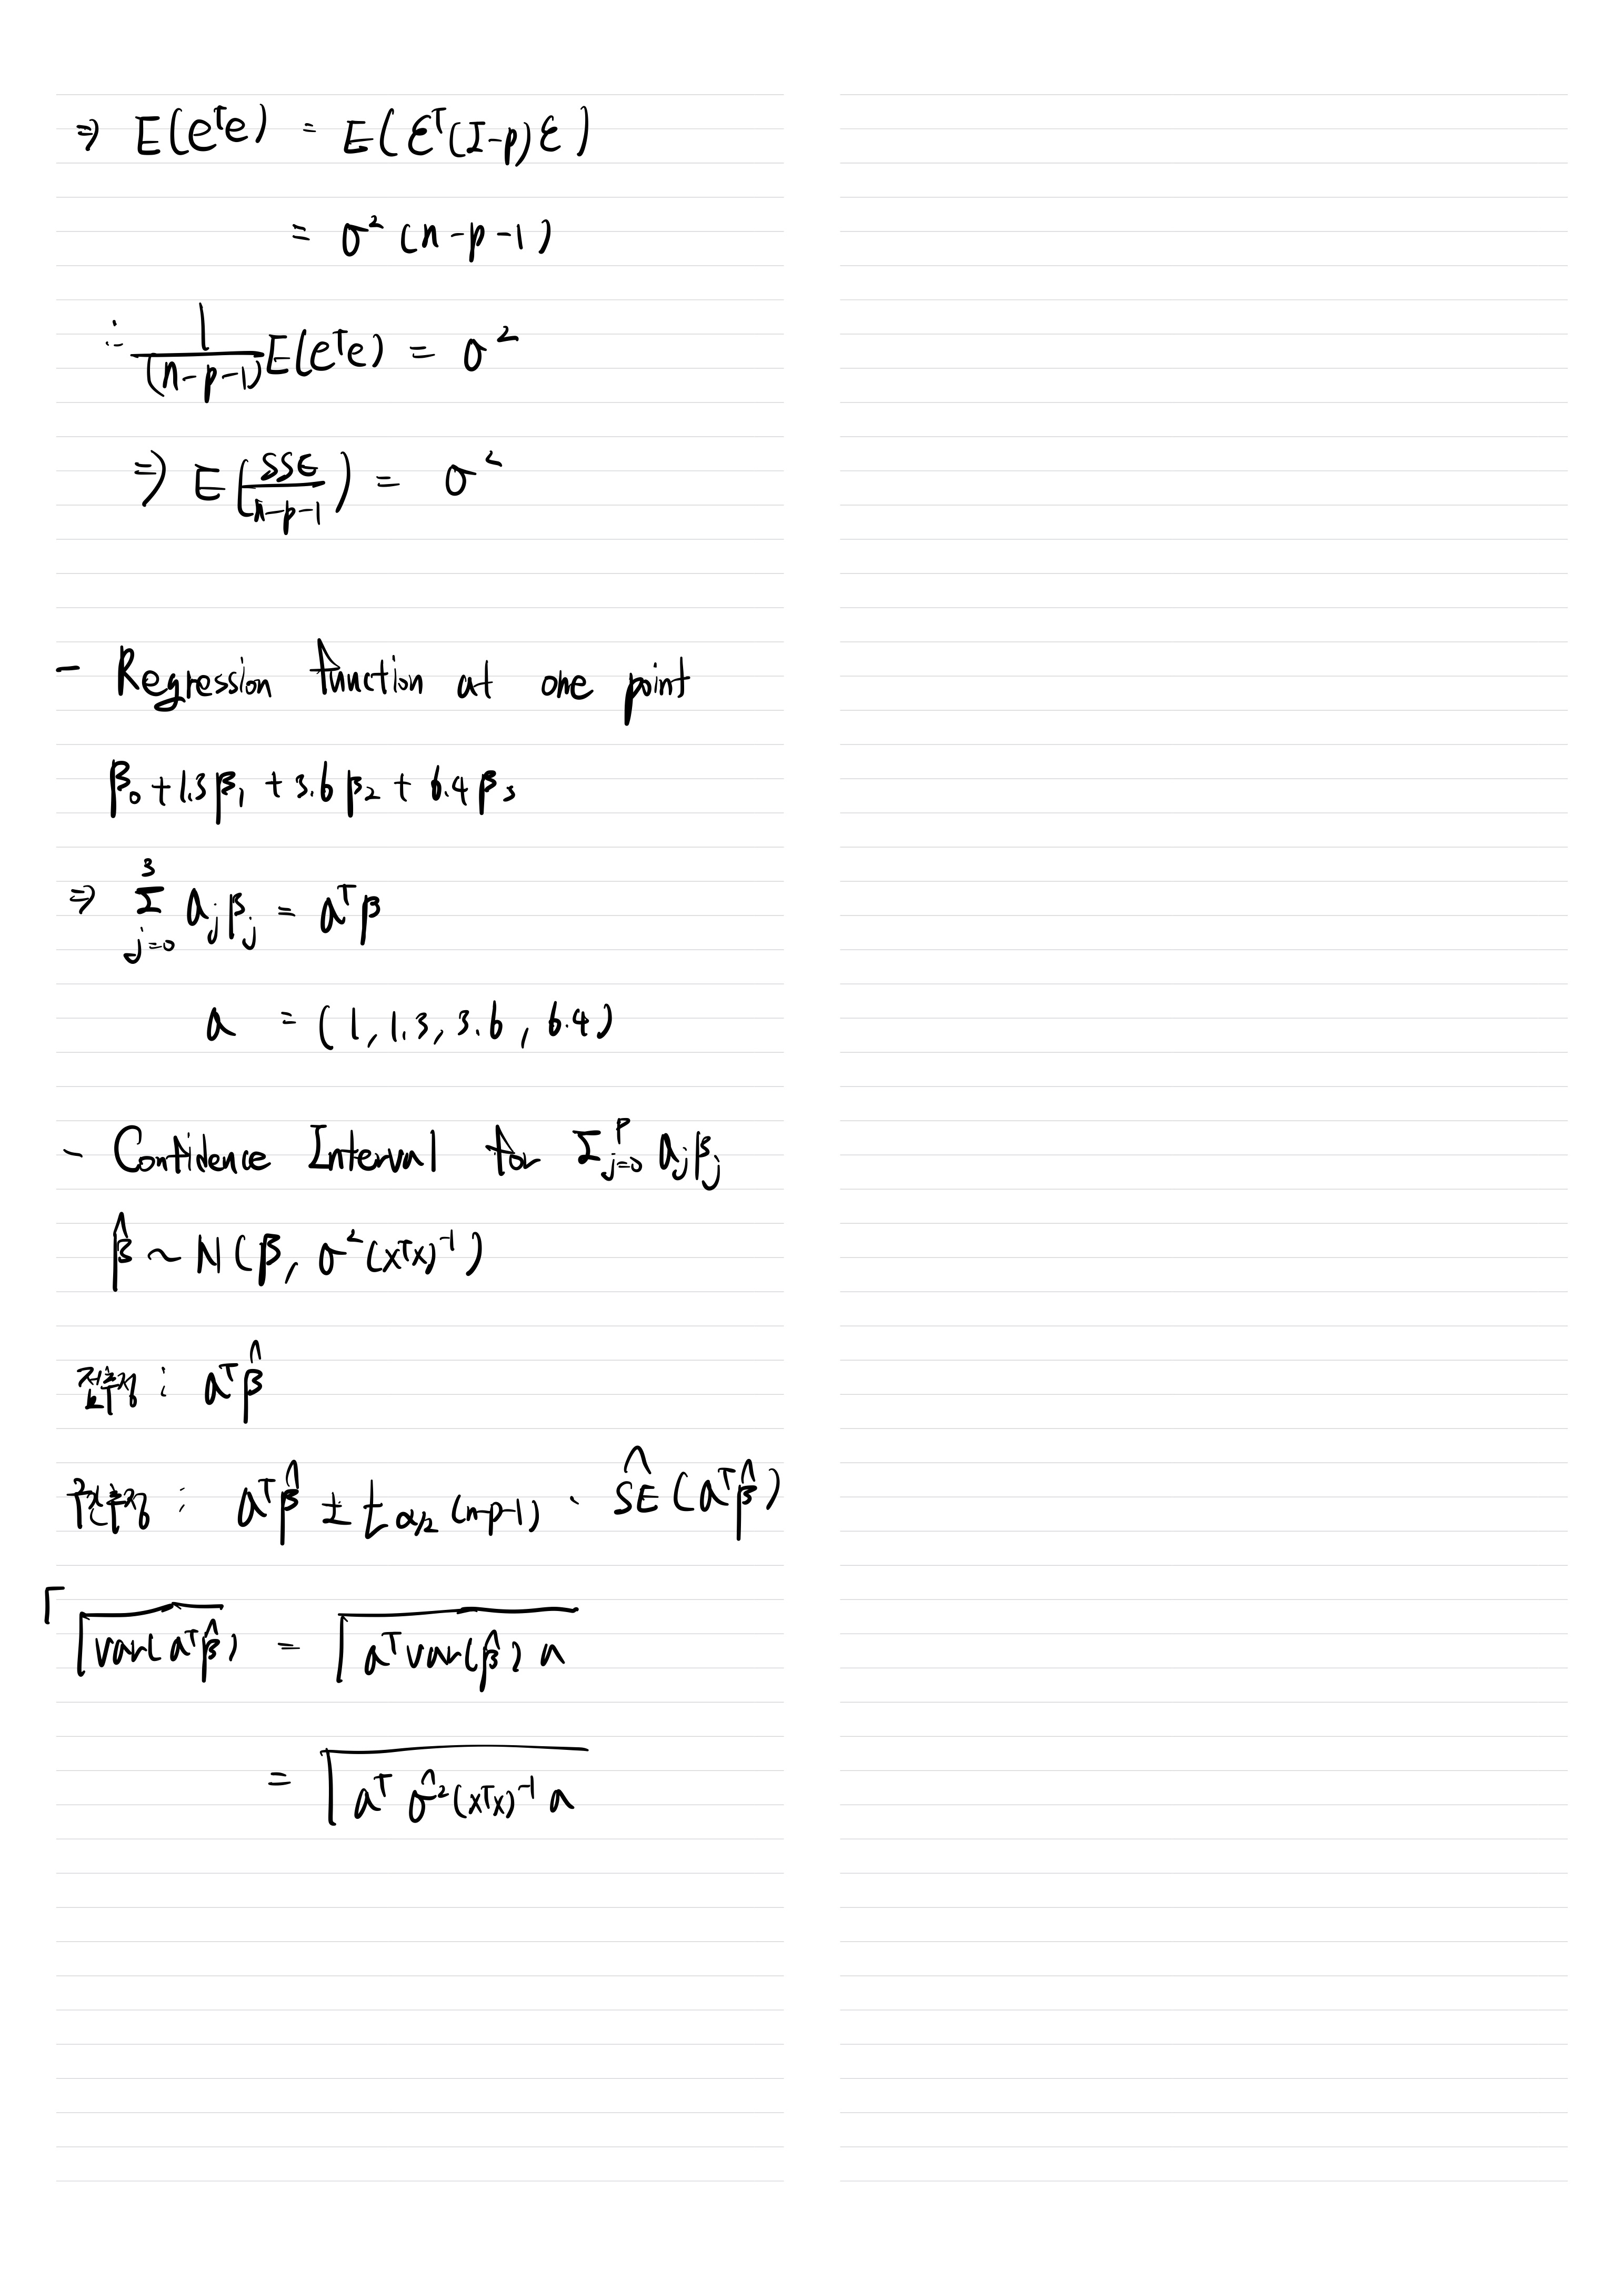 ⇒ E(eᵀe) = E(εᵀ(I-p)ε)
= σ²(n-p-1)
∴ 1/(n-p-1) E(eᵀe) = σ²
⇒ E(SSE/(n-p-1)) = σ²
- Regression function at one point
β₀ + 1.3β₁ + 3.6β₂ + 6.4β₃
⇒ Σ_{j=0}^{3} a_jβ_j = aᵀβ
a = (1, 1.3, 3.6, 6.4)
- Confidence Interval for Σ_{j=0}^{p} a_jβ_j
β̂ ~ N(β, σ²(XᵀX)⁻¹)
점추정 : aᵀβ̂
구간추정 : aᵀβ̂ ± t_{α/2}(n-p-1) · ŜE(aᵀβ̂)
「 √(var(aᵀβ̂)) = √(aᵀvar(β̂)a)
= √(aᵀσ̂²(XᵀX)⁻¹a)